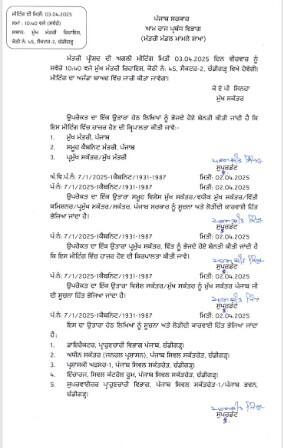 ਮੀਟਿੰਗ ਦੀ ਮਿਤੀ 03.04.2025
ਸਮਾਂ: 10:40 ਵਜੇ (ਸਵੇਰੇ)
ਸਥਾਨ: ਮੁੱਖ ਮੰਤਰੀ ਰਿਹਾਇਸ਼,
ਕੋਠੀ ਨੰ. 45, ਸੈਕਟਰ-2, ਚੰਡੀਗੜ੍ਹ
ਪੰਜਾਬ ਸਰਕਾਰ
ਆਮ ਰਾਜ ਪ੍ਰਬੰਧ ਵਿਭਾਗ
(ਮੰਤਰੀ ਮੰਡਲ ਮਾਮਲੇ ਸ਼ਾਖਾ)
ਮੰਤਰੀ ਪ੍ਰੀਸ਼ਦ ਦੀ ਅਗਲੀ ਮੀਟਿੰਗ ਮਿਤੀ 03.04.2025 ਦਿਨ ਵੀਰਵਾਰ ਨੂੰ
ਸਵੇਰੇ 10:40 ਵਜੇ ਮੁੱਖ ਮੰਤਰੀ ਰਿਹਾਇਸ਼, ਕੋਠੀ ਨੰ: 45, ਸੈਕਟਰ-2, ਚੰਡੀਗੜ੍ਹ ਵਿਖੇ ਹੋਵੇਗੀ।
ਮੀਟਿੰਗ ਦਾ ਅਜੰਡਾ ਬਾਅਦ ਵਿੱਚ ਜਾਰੀ ਕੀਤਾ ਜਾਵੇਗਾ।
ਕੇ ਏ ਪੀ ਸਿਨਹਾ
ਮੁੱਖ ਸਕੱਤਰ
ਉਪਰੋਕਤ ਦਾ ਇੱਕ ਉਤਾਰਾ ਹੇਠ ਲਿਖਿਆਂ ਨੂੰ ਭੇਜਦੇ ਹੋਏ ਬੇਨਤੀ ਕੀਤੀ ਜਾਂਦੀ ਹੈ ਕਿ
ਇਸ ਮੀਟਿੰਗ ਵਿੱਚ ਹਾਜ਼ਰ ਹੋਣ ਦੀ ਕ੍ਰਿਪਾਲਤਾ ਕੀਤੀ ਜਾਵੇ:-
1. ਮੁੱਖ ਮੰਤਰੀ, ਪੰਜਾਬ
2. ਸਮੂਹ ਕੈਬਨਿਟ ਮੰਤਰੀ, ਪੰਜਾਬ
3. ਪ੍ਰਮੁੱਖ ਸਕੱਤਰ/ਮੁੱਖ ਮੰਤਰੀ
ਸੁਪਰਡੰਟ
ਅ.ਵਿ.ਪੱ.ਨੰ. 7/1/2025-1ਕੈਬਨਿਟ/1931-1987 ਮਿਤੀ: 02.04.2025
ਪਿੱ.ਨੰ. 7/1/2025-1ਕੈਬਨਿਟ/1931-1987 ਮਿਤੀ: 02.04.2025
ਉਪਰੋਕਤ ਦਾ ਇੱਕ ਉਤਾਰਾ ਸਮੂਹ ਵਿਸ਼ੇਸ਼ ਮੁੱਖ ਸਕੱਤਰ/ਵਧੀਕ ਮੁੱਖ ਸਕੱਤਰ/ਵਿੱਤੀ
ਕਮਿਸ਼ਨਰ/ਪ੍ਰਮੁੱਖ ਸਕੱਤਰ/ਸਕੱਤਰ, ਪੰਜਾਬ ਸਰਕਾਰ ਨੂੰ ਸੂਚਨਾ ਅਤੇ ਲੋੜੀਂਦੀ ਕਾਰਵਾਈ ਹਿੱਤ
ਭੇਜਿਆ ਜਾਂਦਾ ਹੈ।
ਸੁਪਰਡੰਟ
ਪਿੱ.ਨੰ. 7/1/2025-1ਕੈਬਨਿਟ/1931-1987 ਮਿਤੀ: 02.04.2025
ਉਪਰੋਕਤ ਦਾ ਇੱਕ ਉਤਾਰਾ ਪ੍ਰਮੁੱਖ ਸਕੱਤਰ, ਵਿੱਤ ਨੂੰ ਭੇਜਦੇ ਹੋਏ ਬੇਨਤੀ ਕੀਤੀ ਜਾਂਦੀ ਹੈ
ਕਿ ਇਸ ਮੀਟਿੰਗ ਵਿੱਚ ਹਾਜ਼ਰ ਹੋਣ ਦੀ ਕਿਰਪਾਲਤਾ ਕੀਤੀ ਜਾਵੇ।
ਸੁਪਰਡੰਟ
ਪਿੱ.ਨੰ. 7/1/2025-1ਕੈਬਨਿਟ/1931-1987 ਮਿਤੀ: 02.04.2025
ਉਪਰੋਕਤ ਦਾ ਇੱਕ ਉਤਾਰਾ ਵਿਸ਼ੇਸ਼ ਸਕੱਤਰ/ਮੁੱਖ ਸਕੱਤਰ ਨੂੰ ਮੁੱਖ ਸਕੱਤਰ ਪੰਜਾਬ ਜੀ
ਦੀ ਸੂਚਨਾ ਹਿੱਤ ਭੇਜਿਆ ਜਾਂਦਾ ਹੈ।
ਸੁਪਰਡੰਟ
ਪਿੱ.ਨੰ. 7/1/2025-1ਕੈਬਨਿਟ/1931-1987 ਮਿਤੀ: 02.04.2025
ਇਸ ਦਾ ਉਤਾਰਾ ਹੇਠ ਲਿਖਿਆਂ ਨੂੰ ਸੂਚਨਾ ਅਤੇ ਲੋੜੀਂਦੀ ਕਾਰਵਾਈ ਹਿੱਤ ਭੇਜਿਆ ਜਾਂਦਾ
ਹੈ:-
1. ਡਾਇਰੈਕਟਰ, ਪ੍ਰਾਹੁਣਚਾਰੀ ਵਿਭਾਗ, ਪੰਜਾਬ, ਚੰਡੀਗੜ੍ਹ।
2. ਅਧੀਨ ਸਕੱਤਰ (ਜਨਰਲ ਪ੍ਰਸ਼ਾਸਨ), ਪੰਜਾਬ ਸਿਵਲ ਸਕੱਤਰੇਤ, ਚੰਡੀਗੜ੍ਹ।
3. ਪ੍ਰਸ਼ਾਸਕੀ ਅਫ਼ਸਰ-1, ਪੰਜਾਬ ਸਿਵਲ ਸਕੱਤਰੇਤ, ਚੰਡੀਗੜ੍ਹ।
4. ਇੰਚਾਰਜ, ਸਿਵਲ ਕੰਟਰੋਲ ਰੂਮ, ਪੰਜਾਬ ਸਿਵਲ ਸਕੱਤਰੇਤ, ਚੰਡੀਗੜ੍ਹ।
5. ਸੁਪਰਵਾਈਜ਼ਰ ਪ੍ਰਾਹੁਣਚਾਰੀ ਵਿਭਾਗ, ਪੰਜਾਬ ਸਿਵਲ ਸਕੱਤਰੇਤ-1/ਪੰਜਾਬ ਭਵਨ,
ਚੰਡੀਗੜ੍ਹ।
ਸੁਪਰਡੰਟ